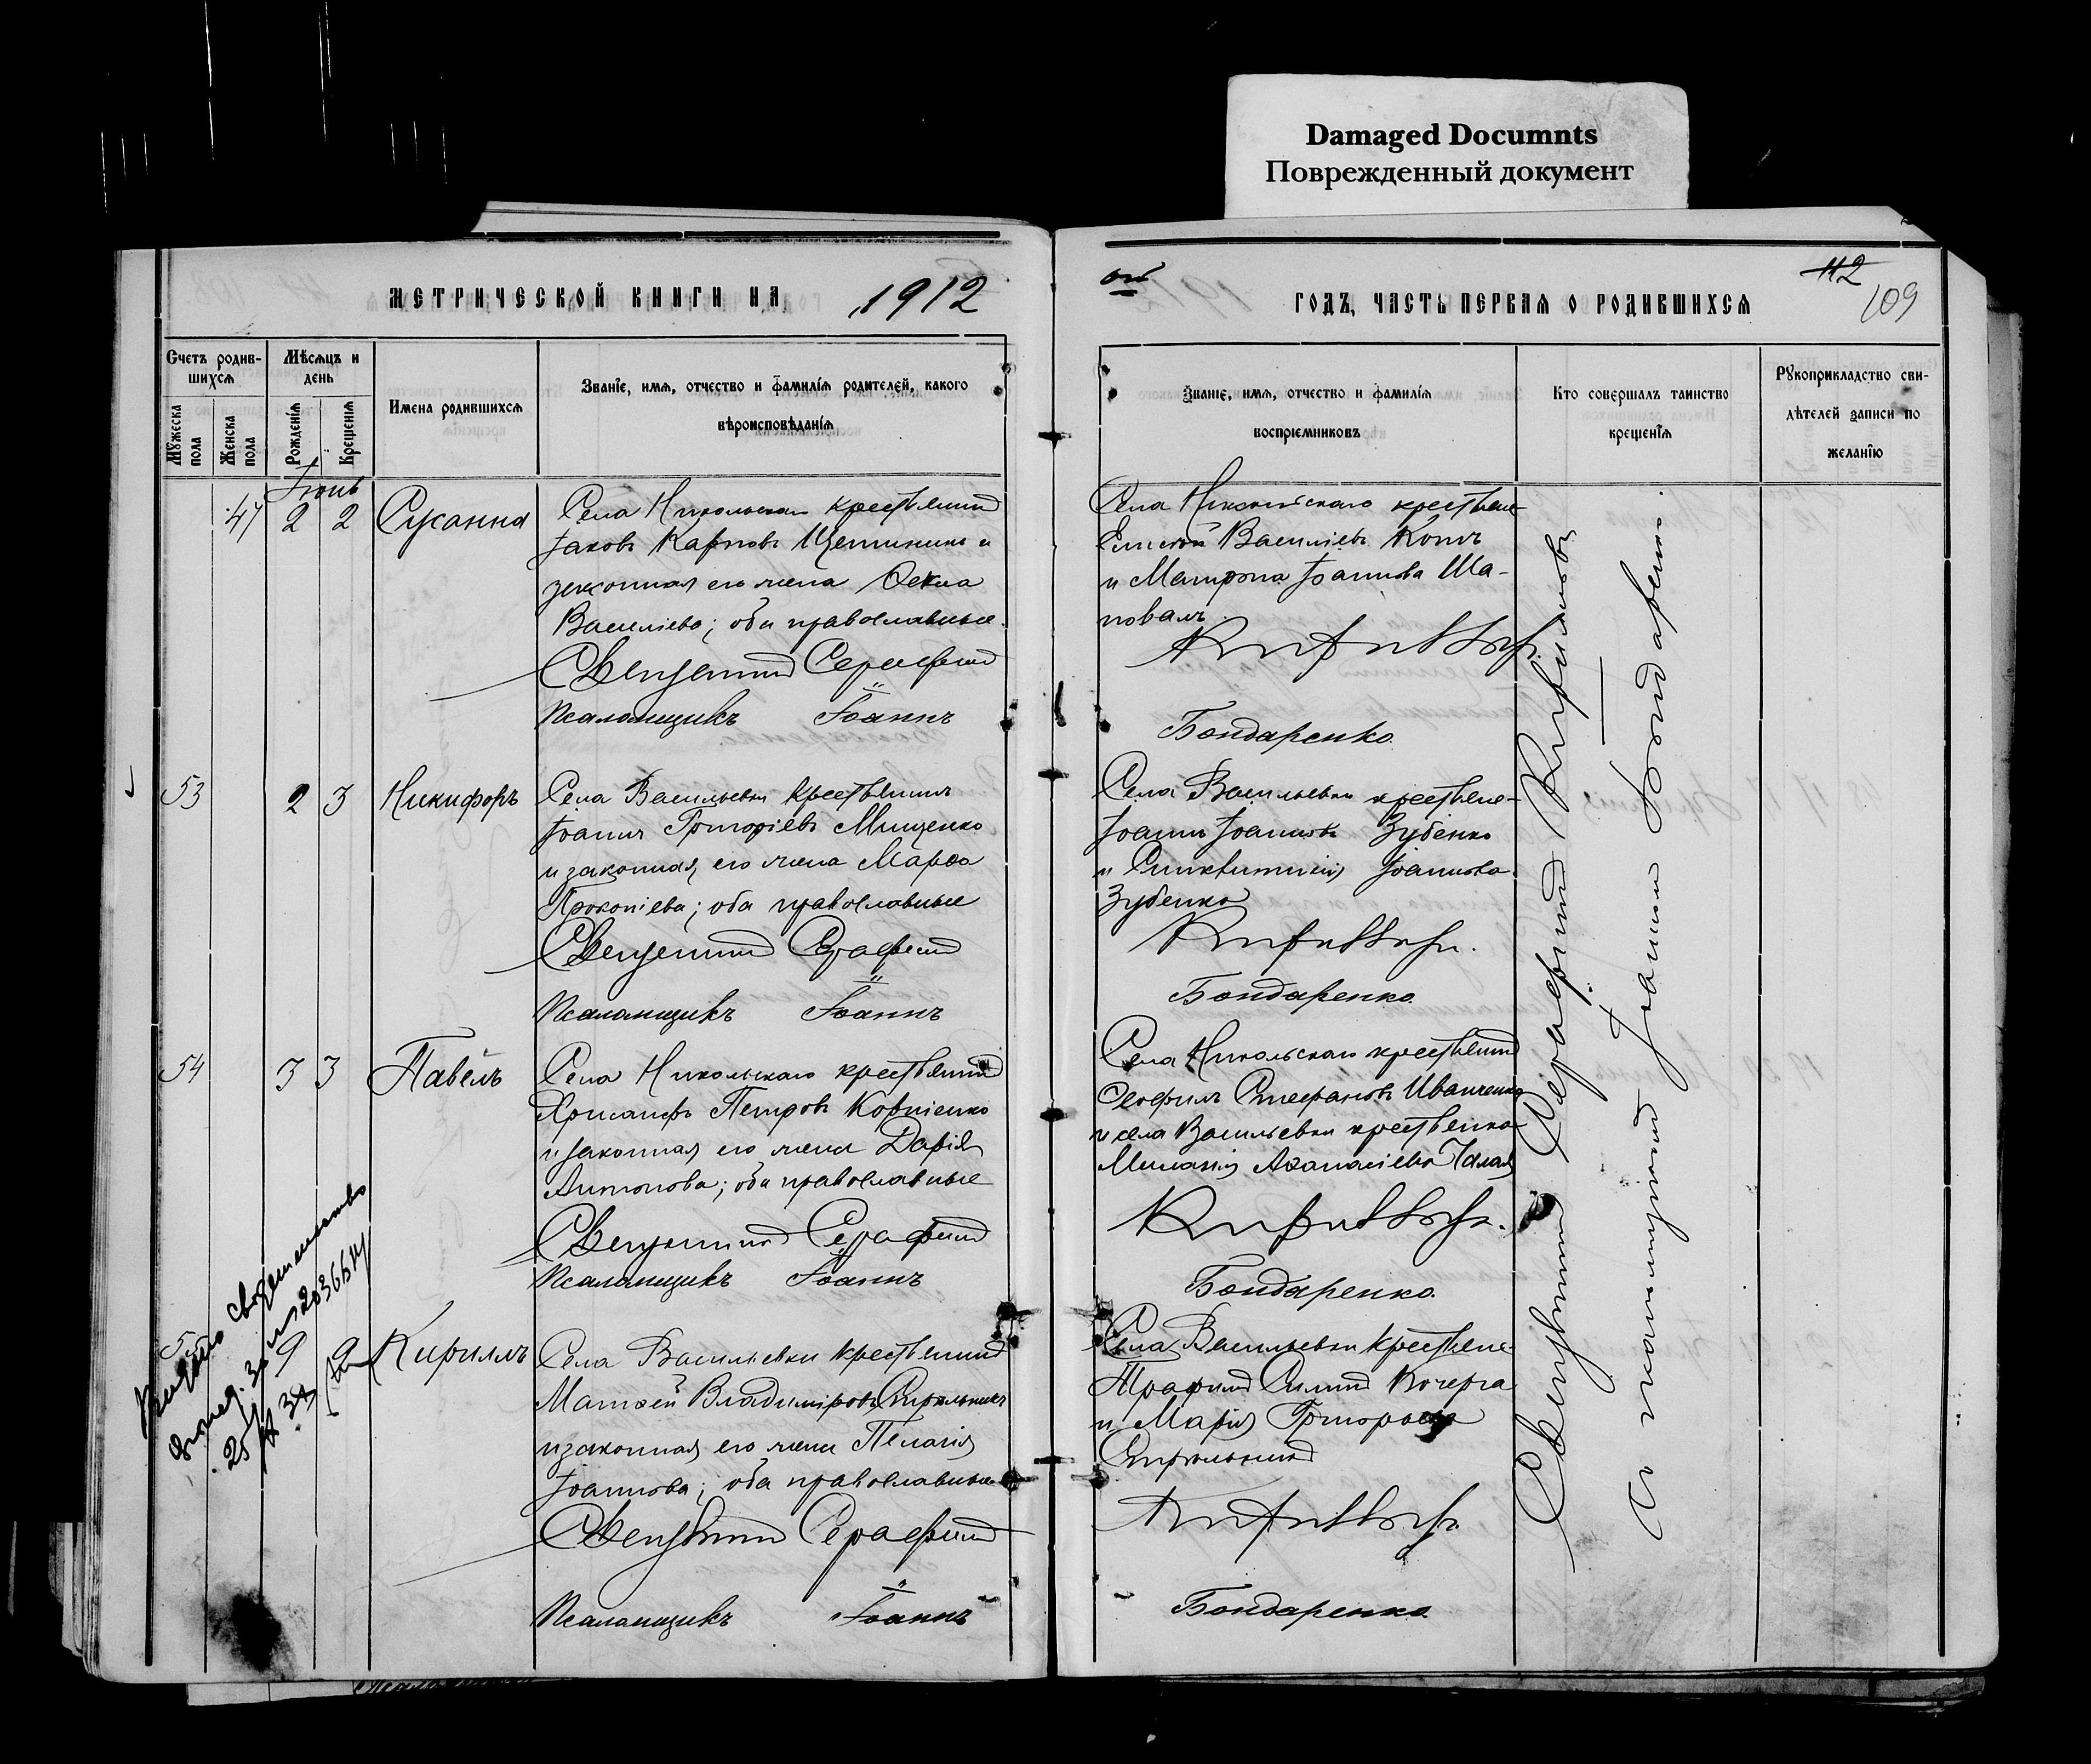 Damaged Documnts
Поврежденный документ
МЕТРИЧЕСКОЙ КНИГИ НА 1912
ГОДЪ, ЧАСТЬ ПЕРВАЯ О РОДИВШИХСЯ
112
109
Счетъ родив-
шихся
Мѣсяцъ и
день
Мужеска
пола
Женска
пола
Рожденія
Крещенія
Имена родившихся
Званіе, имя, отчество и фамилія родителей, какого
вѣроисповѣданія
Званіе, имя, отчество и фамилія
воспріемниковъ
Кто совершалъ таинство
крещенія
Рукоприкладство сви-
дѣтелей записи по
желанію
Іюнь
47 2 2 Сусанна
Села Никольскаго крестьянинъ
Іаковъ Карповъ Щетининъ и
законная его жена Ѳекла
Василіева; оба православные.
Священникъ Серафимъ
Псаломщикъ Іоаннъ
Села Никольскаго крестьяне
Елисей Василіевъ Котъ
и Матрона Іоаннова Ша-
повалъ
Бондаренко.
53 2 3 Никифоръ
Села Васильевки крестьянинъ
Іоаннъ Григоріевъ Мищенко
и законная его жена Марѳа
Прокопіева; оба православные
Священникъ Серафимъ
Псаломщикъ Іоаннъ
Села Васильевки крестьяне
Іоаннъ Іоанновъ Зубенко
и Синклитикія Іоаннова
Зубенко
Бондаренко.
54 3 3 Павелъ
Села Никольскаго крестьянинъ
Хрисанфъ Петровъ Корніенко
и законная его жена Дарія
Антонова; оба православные
Священникъ Серафимъ
Псаломщикъ Іоаннъ
Села Никольскаго крестьянинъ
Ѳеофилъ Стефановъ Иванченко
и села Васильевки крестьянка
Меланія Аѳанасіева
Бондаренко.
55 9 Кириллъ
Села Васильевки крестьянинъ
Матѳей Владиміровъ Стрельникъ
и законная его жена Пелагія
Іоаннова; оба православные
Священникъ Серафимъ
Псаломщикъ Іоаннъ
Села Васильевки крестьяне
Кочерга
и Марія Григорьева
Бондаренко.
Священникъ Серафимъ
Съ псаломщикомъ Іоанномъ Бондаренко
свидетельство